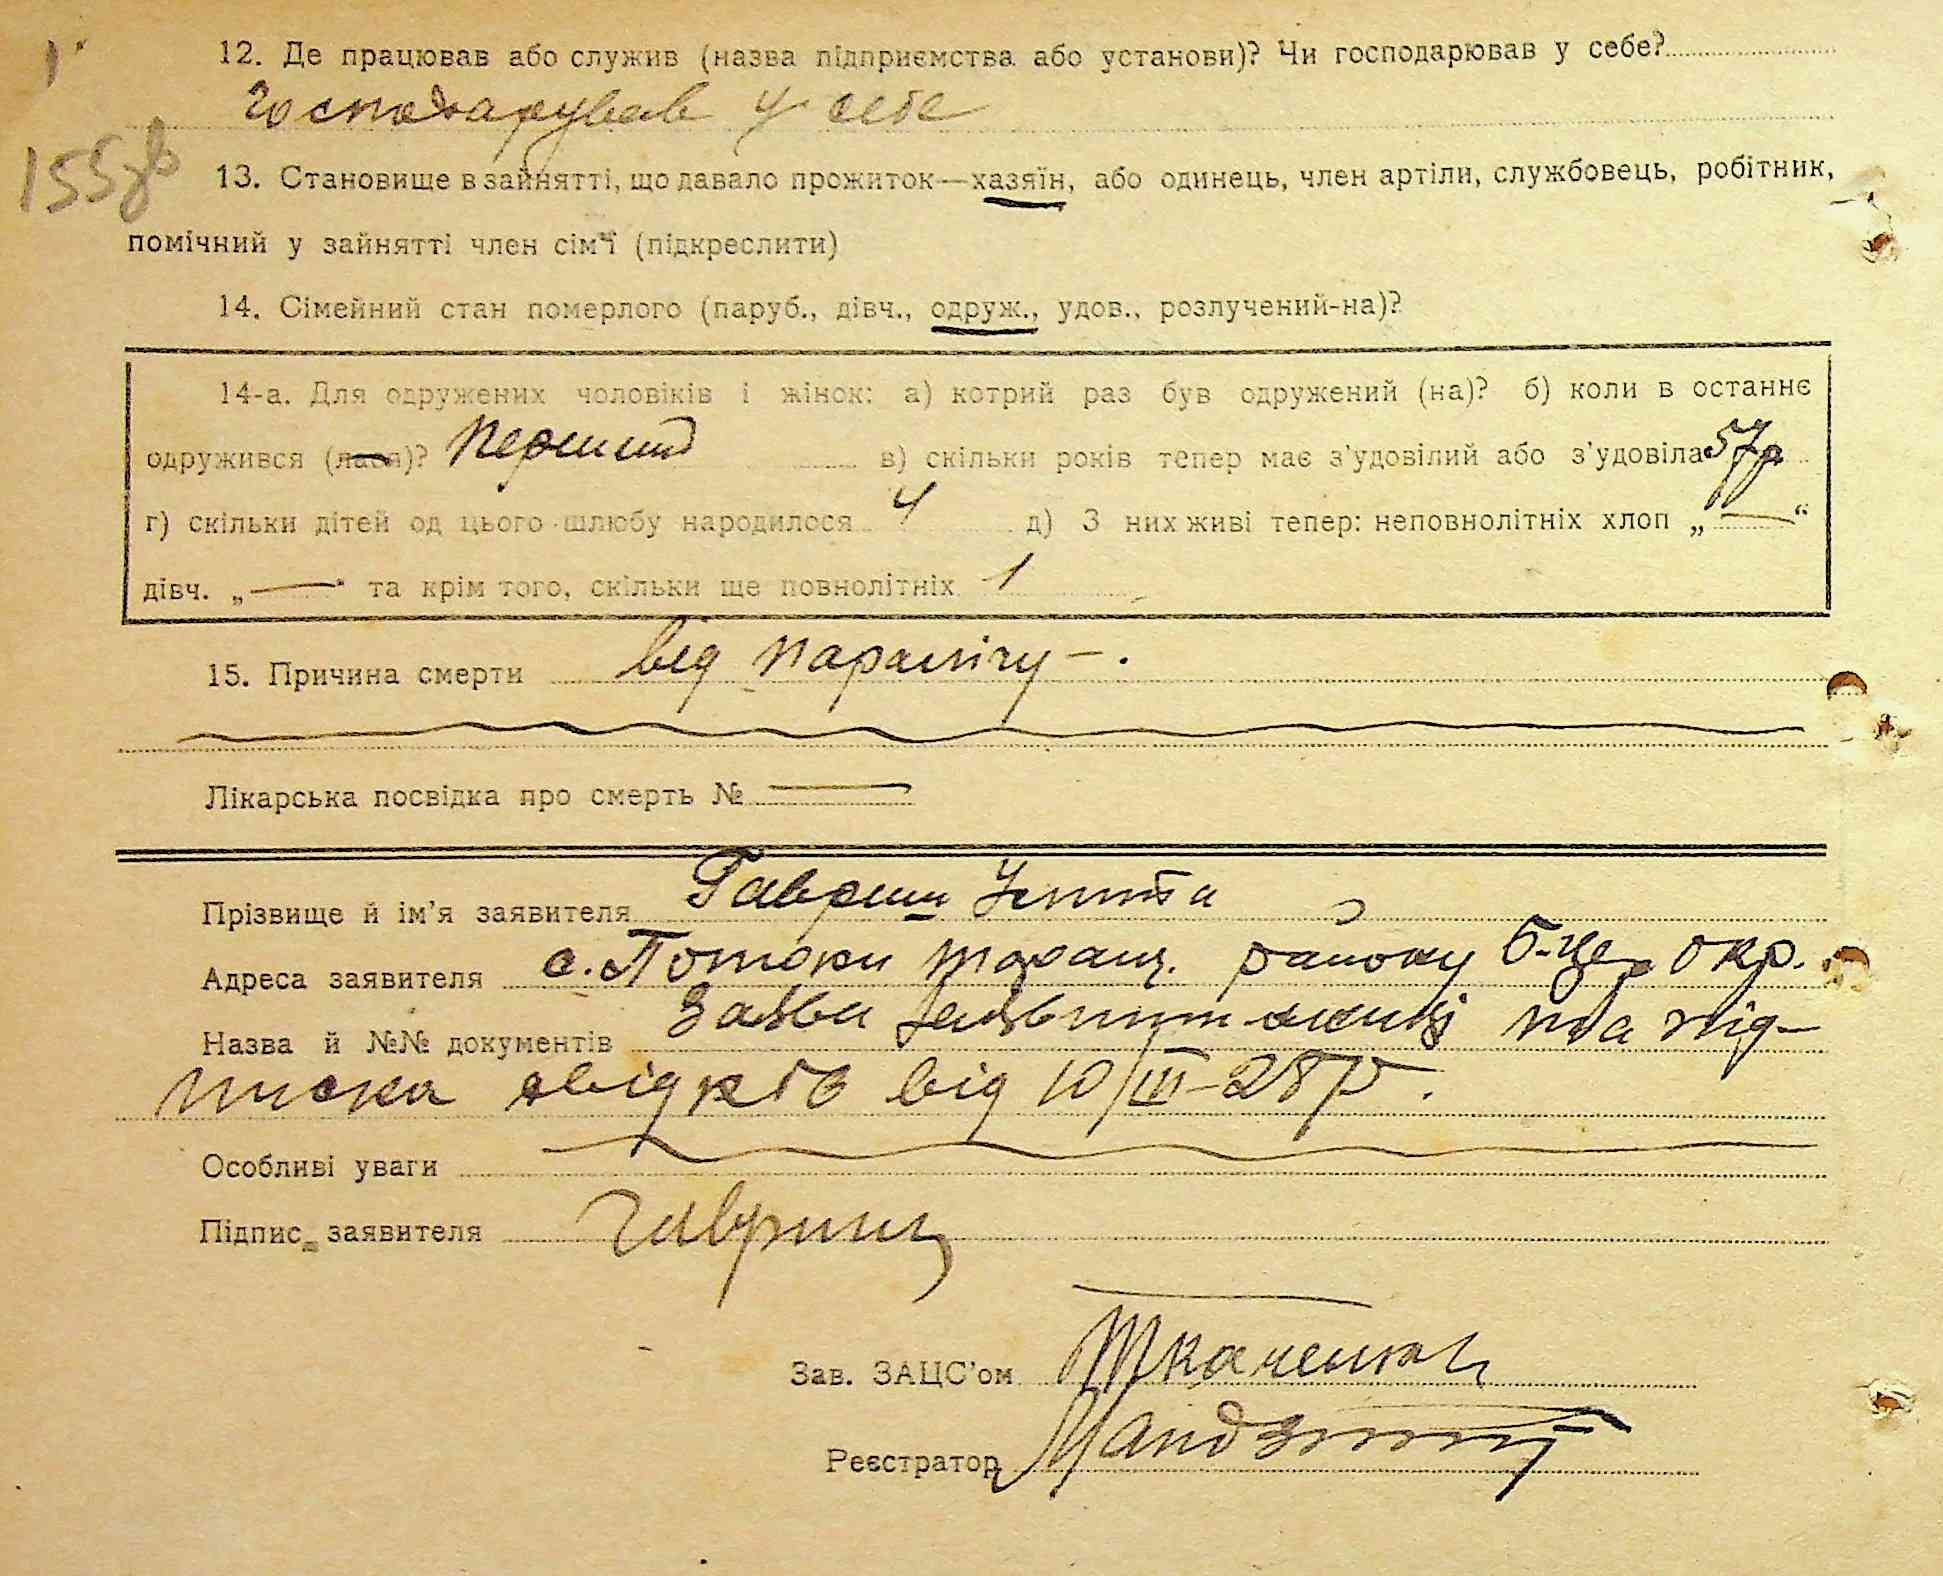 12. Де працював або служив (назва підприємства або установи)? Чи господарював у себе?
Господарував у себе
155зв
13. Становище в зайнятті, що давало прожиток—хазяїн, або одинець, член артіли, службовець, робітник,
помічний у зайнятті член сім'ї (підкреслити)
14. Сімейний стан померлого (паруб., дівч., одруж., удов., розлучений-на)?
14-а. Для одружених чоловіків і жінок: а) котрий раз був одружений (на)? б) коли в останнє
одружився (лася)? Перший в) скільки років тепер має з'удовілий або з'удовіла 57р
г) скільки дітей од цього шлюбу народилося 4 д) З них живі тепер: неповнолітніх хлоп „—“
дівч. „—“ та крім того, скільки ще повнолітніх 1
15. Причина смерти від паралічу —.
Лікарська посвідка про смерть № —
Прізвище й ім'я заявителя Гавриш
Адреса заявителя с. Потоки таращ. району Б-Це. окр.
Назва й №№ документів Заява та під-
писка свідків від 10/III-28р.
Особливі уваги
Підпис заявителя Гавриш
Зав. ЗАЦС'ом Ткаченко
Реєстратор